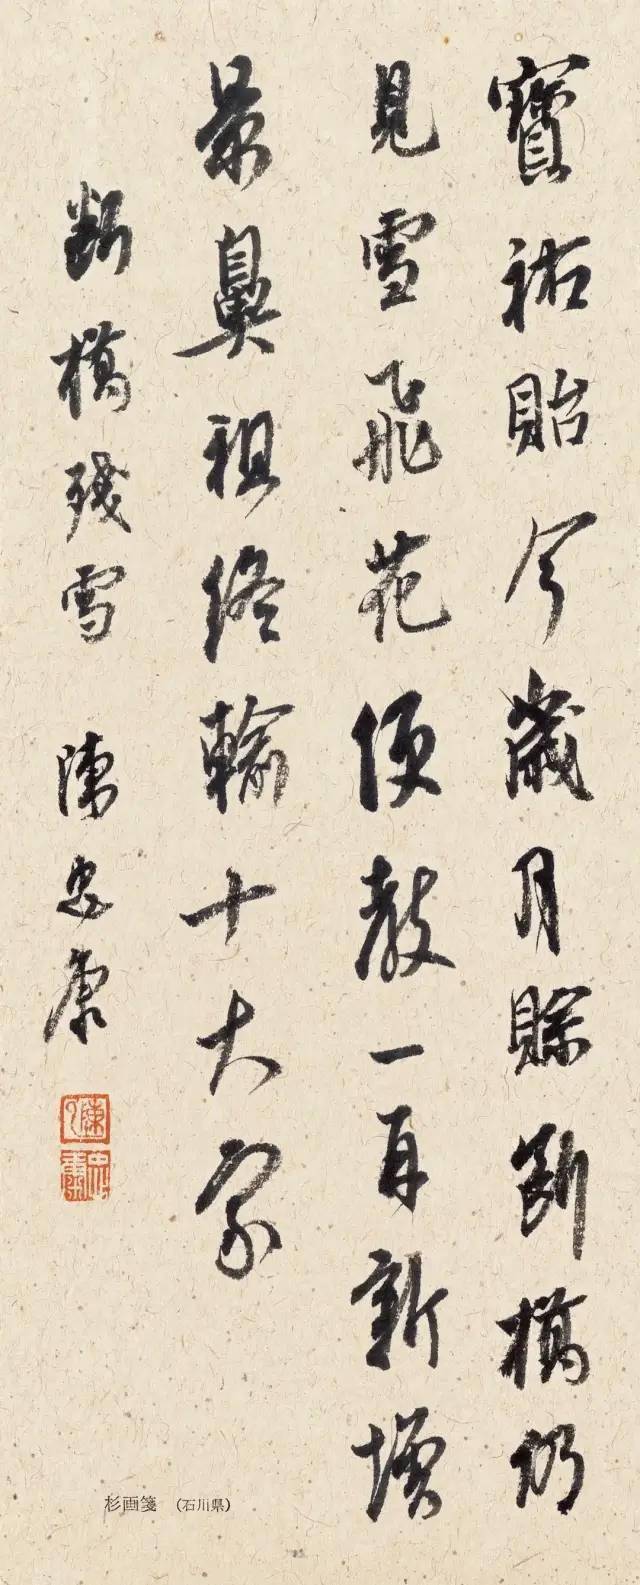 寶祐貽今歲月賒斷橋仍
見雪飛花便教一再新增
景鼻祖終輸十大家
斷橋殘雪 陳忠康
杉画箋 （石川県）